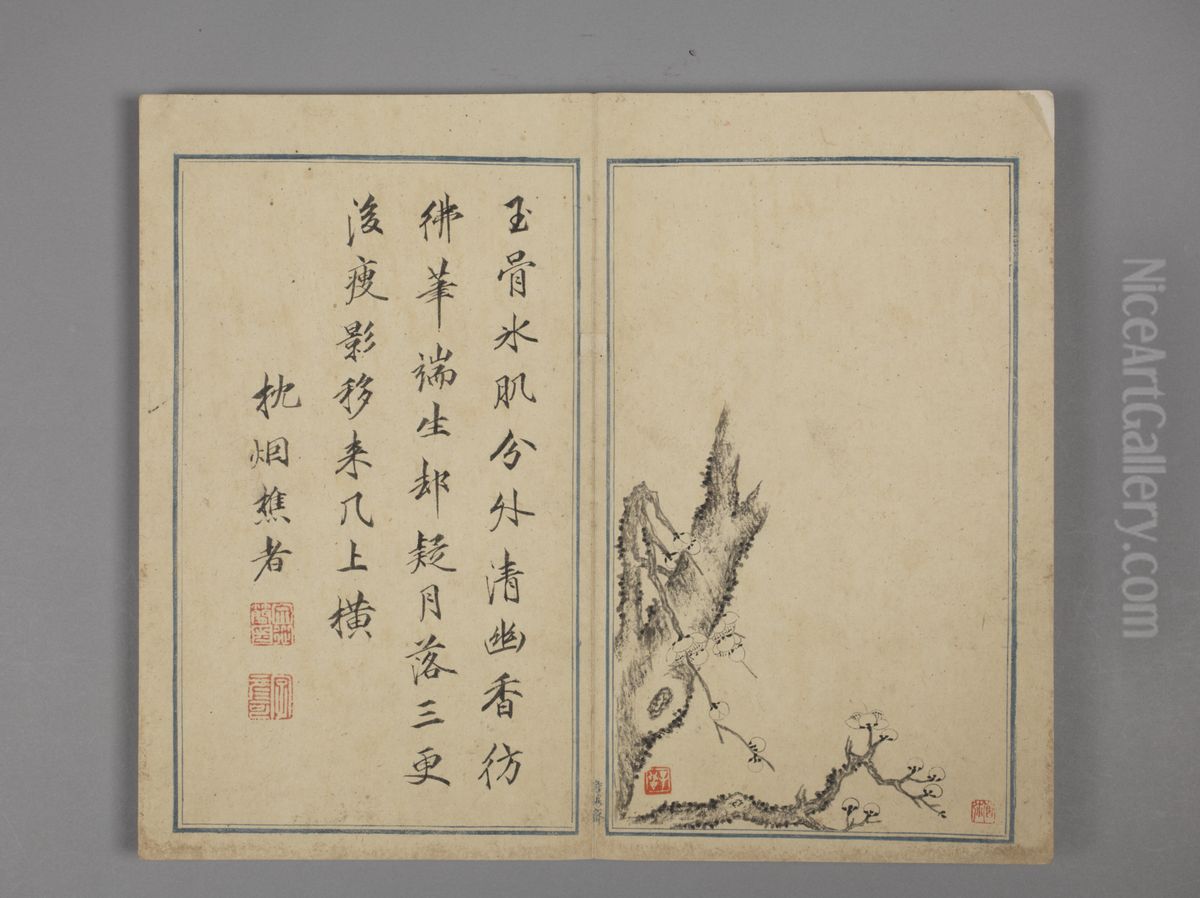 玉骨氷肌分外清幽香彷
彿筆端生却疑月落三更
後瘦影移来几上橫
枕烟樵者
NiceArtGallery.com